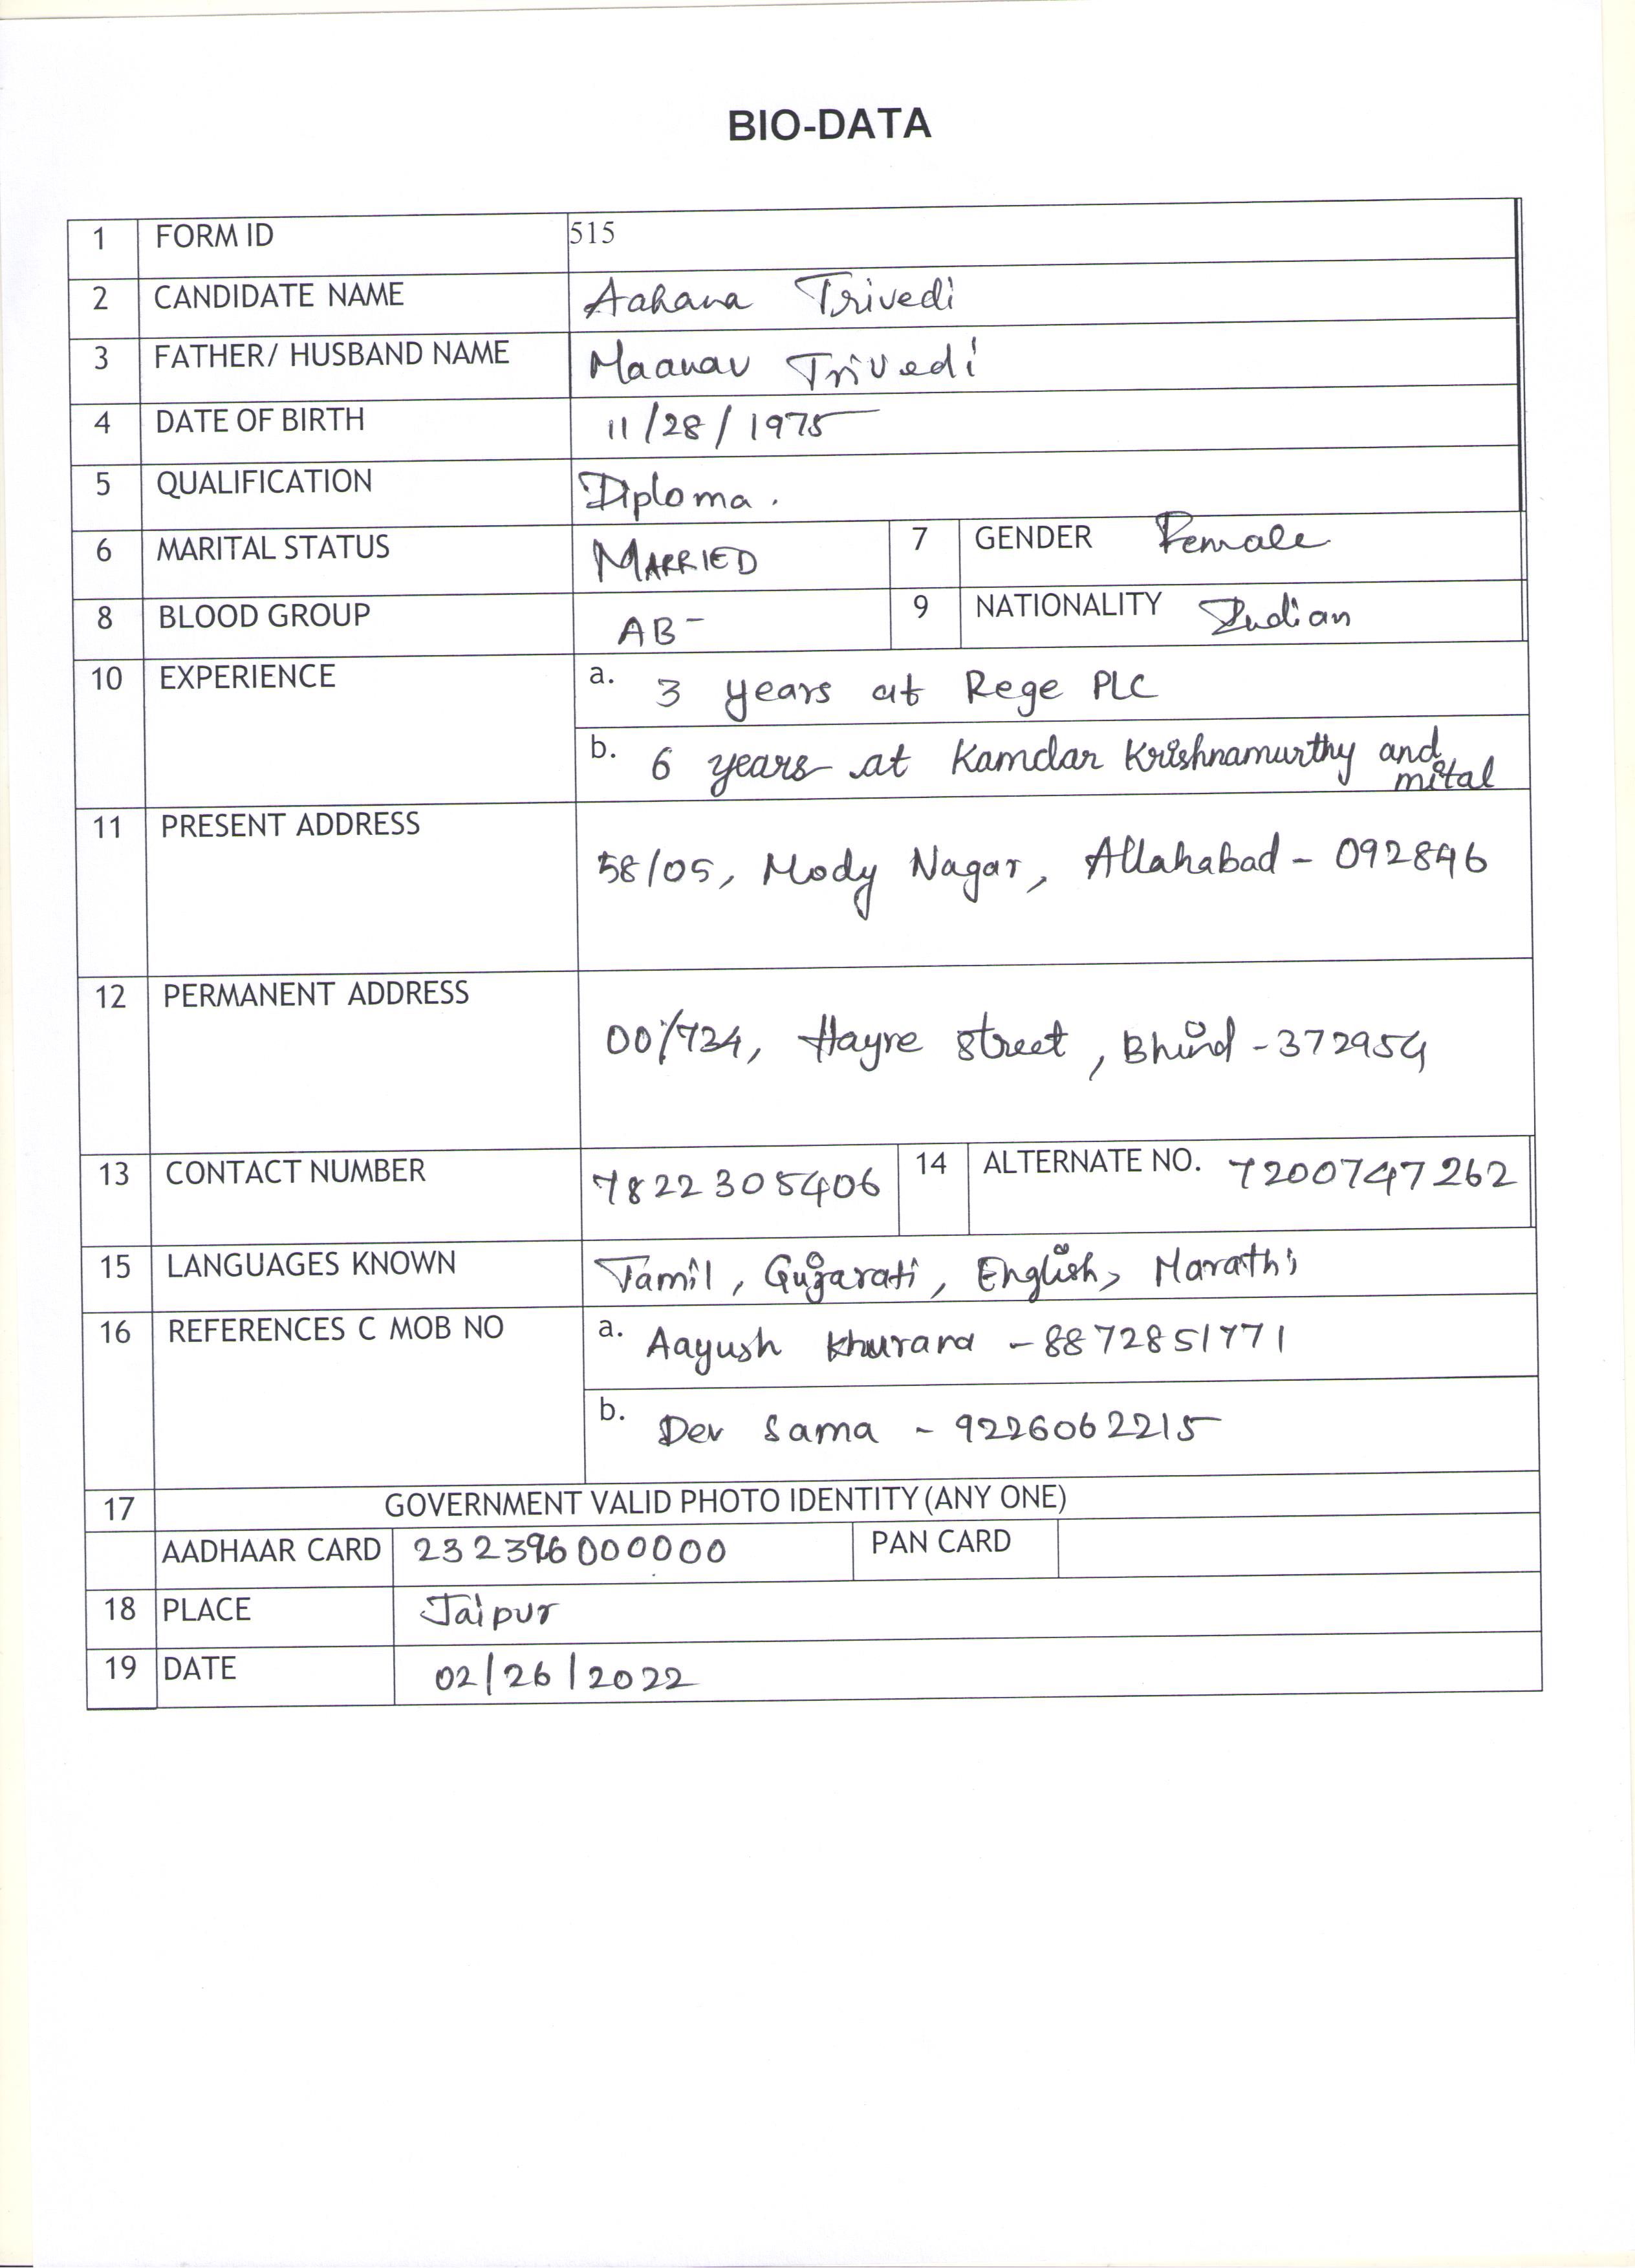 BIO-DATA
1 FORM ID 515
2 CANDIDATE NAME Aahana Trivedi
3 FATHER/ HUSBAND NAME Maanav Trivedi
4 DATE OF BIRTH 11/28/1975
5 QUALIFICATION Diploma.
6 MARITAL STATUS MARRIED 7 GENDER Female
8 BLOOD GROUP AB- 9 NATIONALITY Indian
10 EXPERIENCE a. 3 years at Rege PLC
b. 6 years at Kamdar Krishnamurthy and
mital
11 PRESENT ADDRESS
58/05, Mody Nagar, Allahabad - 092896
12 PERMANENT ADDRESS
00/724, Hayre street, Bhind - 372954
13 CONTACT NUMBER 7822305406 14 ALTERNATE NO. 7200747262
15 LANGUAGES KNOWN Tamil, Gujarati, English, Marathi
16 REFERENCES C MOB NO a. Aayush Khurana - 8872851771
b. Dev Sama - 9226062215
17 GOVERNMENT VALID PHOTO IDENTITY (ANY ONE)
AADHAAR CARD 232396000000 PAN CARD
18 PLACE Jaipur
19 DATE 02/26/2022